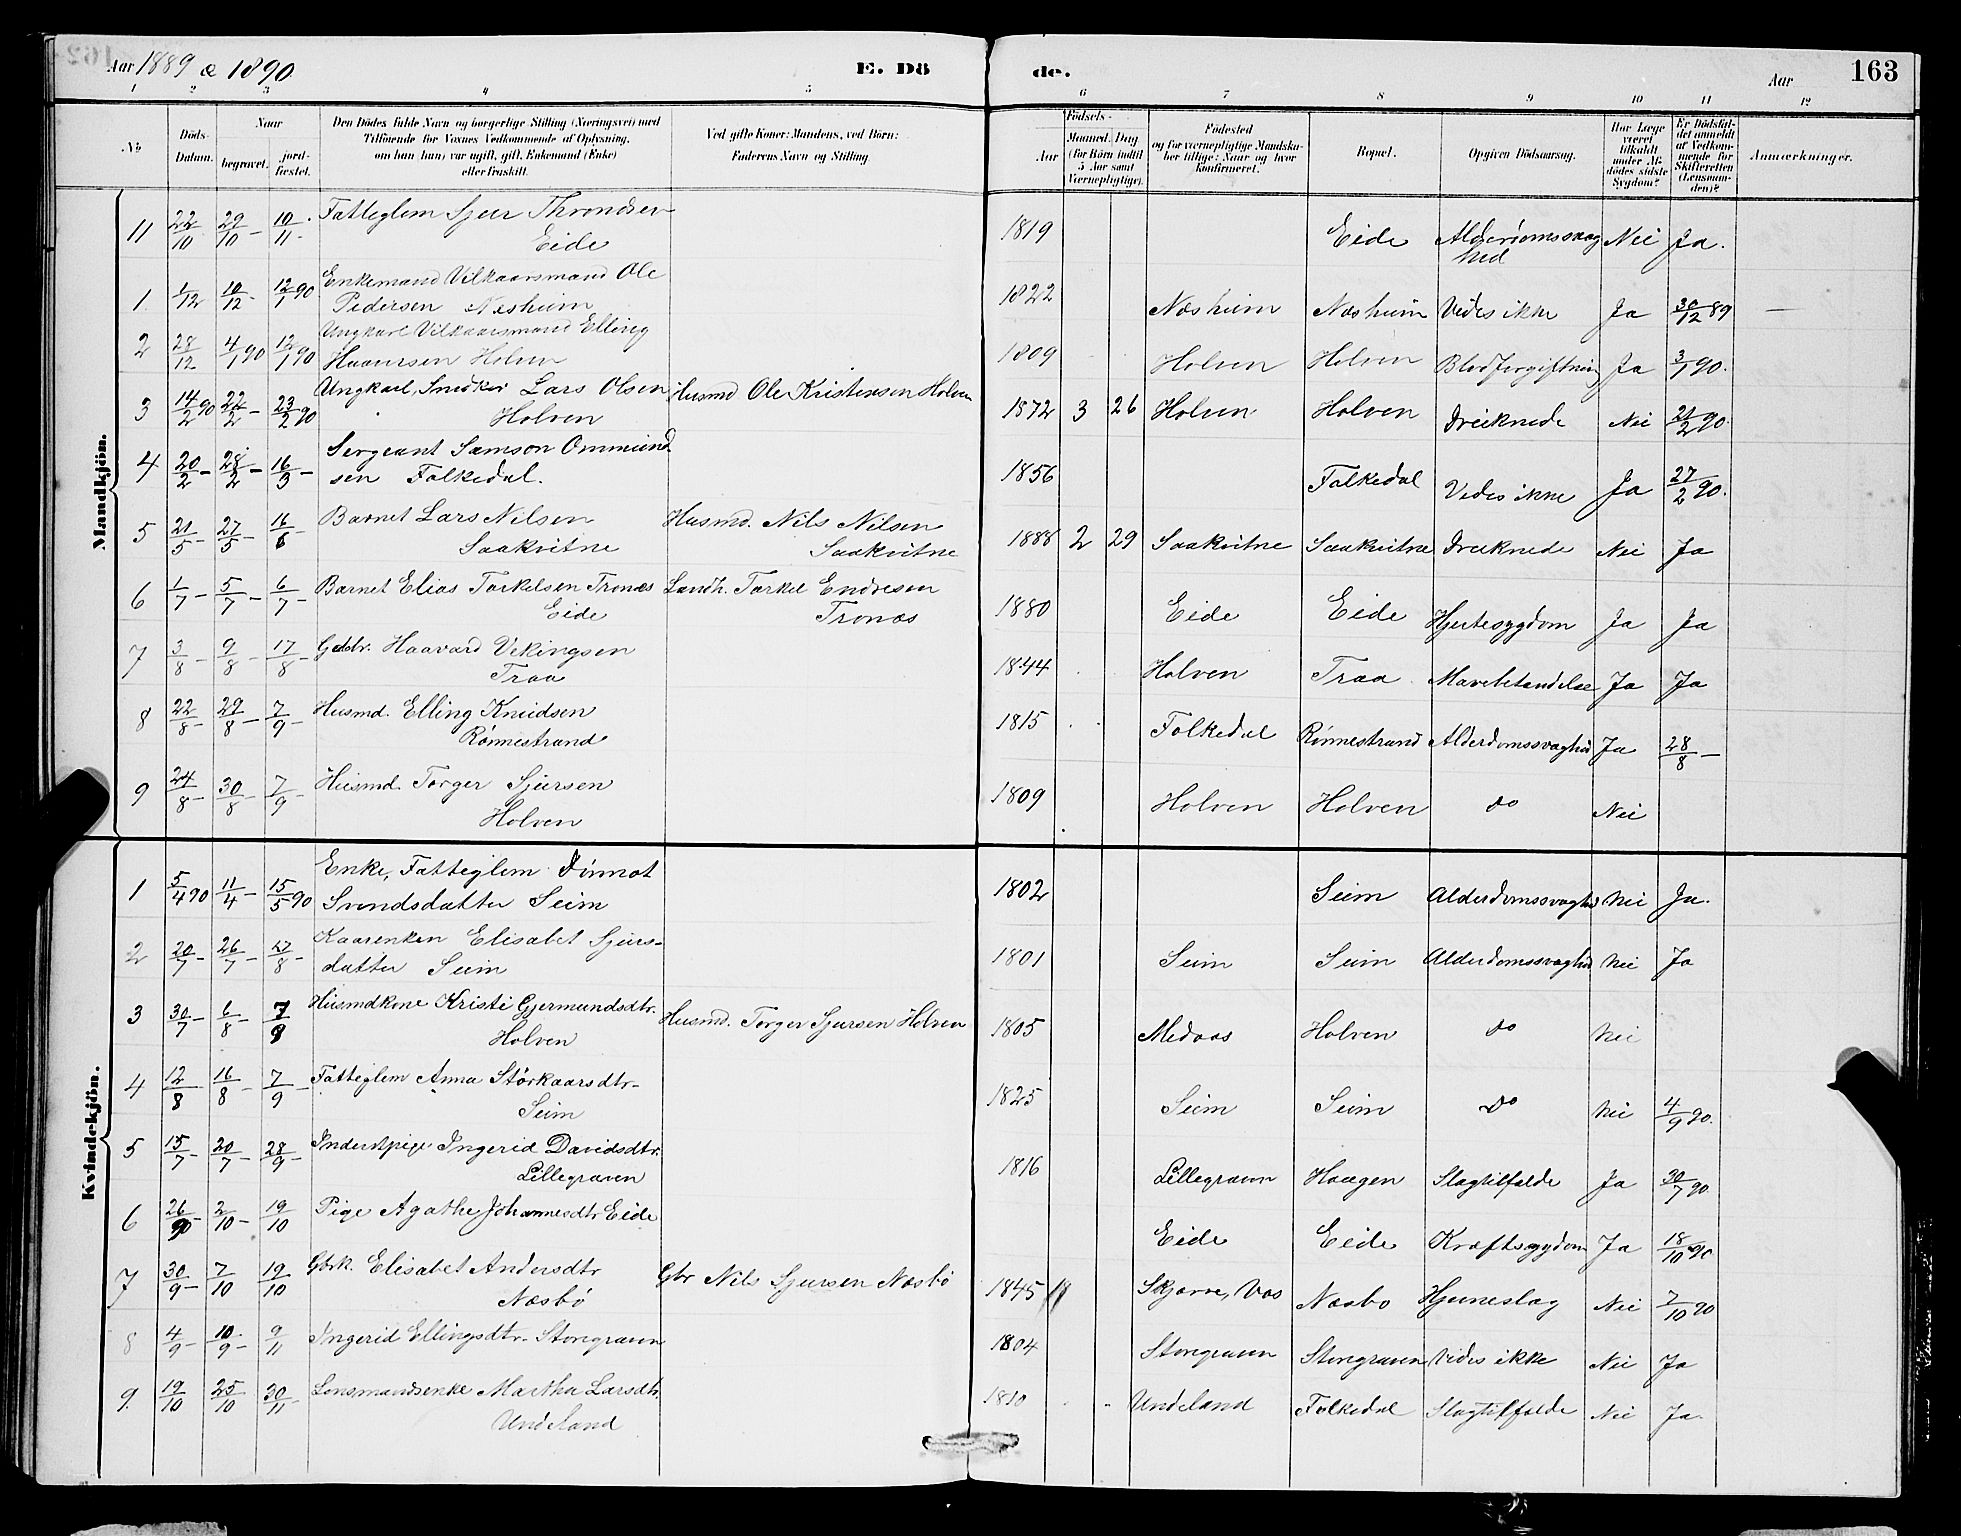 Aar 1889 & 1890 E. Dö de. Aar 163
1 2 3 4 5 6 7 8 9 10 11 12
No Döds-Datum. Naar begravet. jord-fæstet. Den Dödes fulde Navn og borgerlige Stilling (Næringsvei) med Tilföiende for Voxnes Vedkommende af Oplysning, om han (hun) var ugift, gift, Enkemand (Enke) eller fraskilt. Ved gifte Koner: Mandens, ved Börn: Faderens Navn og Stilling. Födsels- Aar Maaned. Dag (for Börn indtil 5 Aar samt Værnepligtige). Födested og for værnepligtige Mandskaber tillige: Naar og hvor konfirmeret. Bopæl. Opgiven Dödsaarsag. Har Læge været tilkaldt under Afdödes sidste Sygdom? Er Dödsfaldet anmeldt af Vedkommende for Skifteretten (Lensmanden)? Anmærkninger.
Mandkjön.
11 22/10 29/10 - 10/11 - Fatteglem Sjur Throndsen Eide 1819 Eide Alderdomssvaghed Nei Ja.
1 1/12 10/12 - 12/1 90 Enkemand Vilkaarsmand Ole Pedersen Nesheim 1822 Næsheim Næsheim Vides ikke Ja 30/12 89 —
2 28/12 4/1 90 12/1 90 Ungkarl Vilkaarsmand Elling Haaversen Holven 1809 Holven Holven Blodforgiftning Ja 3/1 90.
3 14/2 90 22/2 - 23/2 90 Ungkarl, Snedker Lars Olsen Holven Husmd Ole Kristensen Holven 1872 3 26 Holven Holven Druknede Nei 21/2 90
4 20/2 - 28/2 - 16/3 - Sergeant Samson Ommundsen Folkedal. 1856 Folkedal Vides ikke Ja 27/2 90.
5 21/5 - 27/5 - 16/6 Barnet Lars Nilsen Saakvitne Husmd. Nils Nilsen Saakvitne 1888 2 29 Saakvitne Saakvitne Druknede Nei Ja
6 1/7 - 5/7 - 6/7 - Barnet Elias Torkelsen Tronæs Eide Landh. Torkel Endresen Tronæs 1880 Eide Eide Hjertesygdom Ja Ja
7 3/8 - 9/8 - 17/8 - Gdbr. Haavard Vikingsen Traa 1844 Holven Traa Mavebetændelse Ja Ja
8 22/8 - 29/8 - 7/9 - Husmd. Elling Knudsen Rönnestrand 1815 Folkedal Rönnestrand Alderdomssvaghed Ja 28/8 -
9 24/8 - 30/8 - 7/9 - Husmd. Torger Sjursen Holven 1809 Holven Holven do Nei
Kvindekjön.
1 5/4 90 11/4 - 15/5 90 Enke, Fatteglem Svendsdatter Seim 1802 Seim Alderdomssvaghed Nei Ja.
2 20/7 - 26/7 - 17/8 - Kaarenken Elisabet Sjursdatter Seim 1801 Seim Seim Alderdomssvaghed Nei Ja
3 30/7 - 6/8 - 7/9 Husmdkone Kristi Gjermundsdtr. Holven Husmd. Torger Sjursen Holven 1805 Medaas Holven do Nei
4 12/8 16/8 - 7/9 - Fatteglem Anna Störkaarsdtr- Seim 1825 Seim Seim do Nei 4/9 90.
5 15/7 - 20/7 - 28/9 - Inderstpige Ingerid Davidsdtr. Lillegraven 1816 Lillegraven Haagen Slagtilfælde Ja 30/7 90
6 26/9 - 2/10 - 19/10 Pige Agathe Johannesdtr Eide Eide Eide Kræftsygdom Ja 18/10 90
7 30/9 - 7/10 19/10 Gbrk. Elisabet Andersdtr Næsbö Gbr Nils Sjursen Næsbö 1845 Skjerve, Vos Næsbo Hjerneslag Nei 7/10 90
8 4/9 - 10/9 - 9/11 Ingerid Ellingsdtr. Storegraven 1804 Storegraven Storegraven Vides ikke Nei Ja
9. 19/10 25/10 30/11 - Lensmandsenke Martha Larsdtr. Undeland 1810 Undeland Folkedal Slagtilfælde Nei Ja.